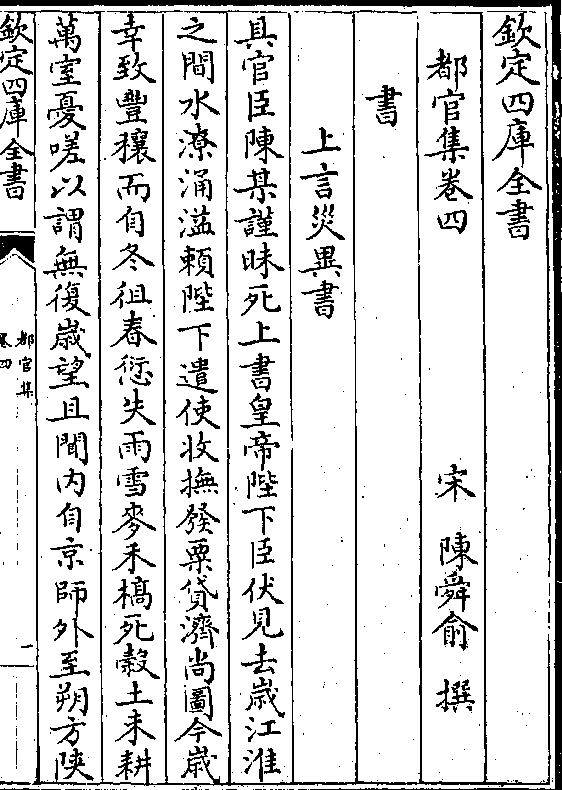 欽定四庫全書
都官集卷四
宋 陳舜俞 撰
書
上言災異書
具官臣陳某謹昧死上書皇帝陛下臣伏見去歲江淮
之間水潦涌溢賴陛下遣使收撫發粟貸濟尚圖今歲
幸致豐穰而自冬徂春愆失雨雪麥禾槁死穀土未耕
萬室憂嗟以謂無復歲望且聞內自京師外至朔方陝
欽定四庫全書
都官集
卷四
一